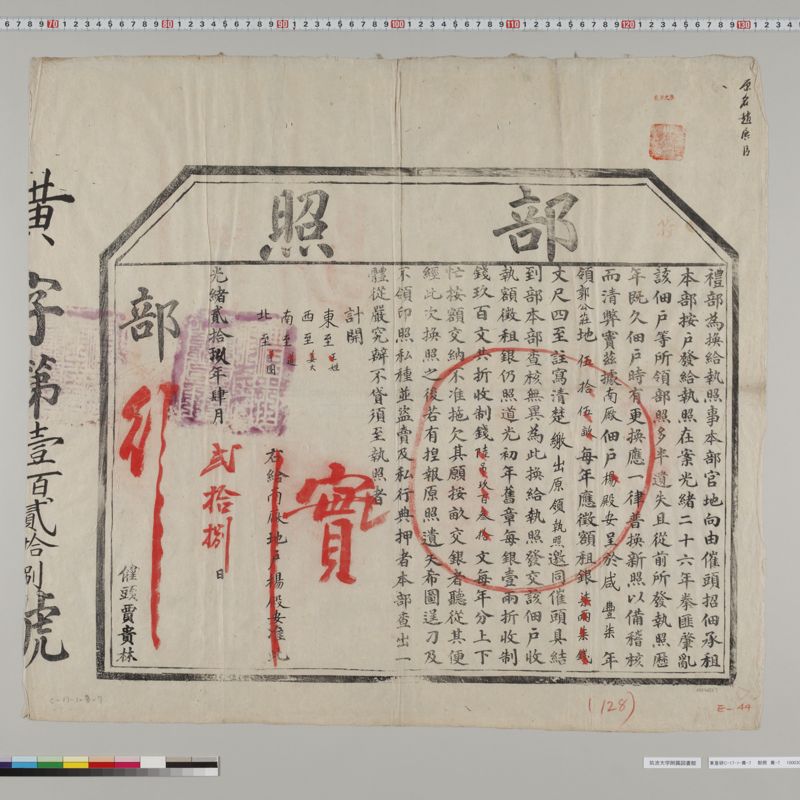 原名趙
部照
禮部為換給執照事本部官地向由催頭招佃承租
本部按戶發給執照在案光緒二十六年拳匪肇亂
該佃戶等所領部照多半遺失且從前所發執照歷
年既久佃戶時有更換應一律普換新照以備稽核
而清弊竇茲據南廠佃戶楊殿安呈於咸豐柒年
領郭公莊地伍拾伍畝每年應徵額租銀柒兩柒錢
丈尺四至註寫清楚繳出原領執照邀同催頭具結
到部本部查核無異為此換給執照發交該佃戶收
執額徵租銀仍照道光初年舊章每銀壹兩折收制
錢玖百文共折收制錢陸千玖百叁拾文每年分上下
忙按額交納不准拖欠其願按畝交銀者聽從其便
經此次換照之後若有捏報原照遺失希圖逞刁及
不領印照私種並盜賣及私行典押者本部查出一
體從嚴究辦不貸須至執照者
計開
東至王姓
西至
南至道
北至
右給南廠地戶楊殿安准此
實
光緒貳拾玖年肆月貳拾捌日
部
行
催頭賈貴林
黃字第壹百貳拾捌號
C-17-1-黃-7
(128)
E-44
筑波大学附属図書館
70 80 90 100 110 120 130